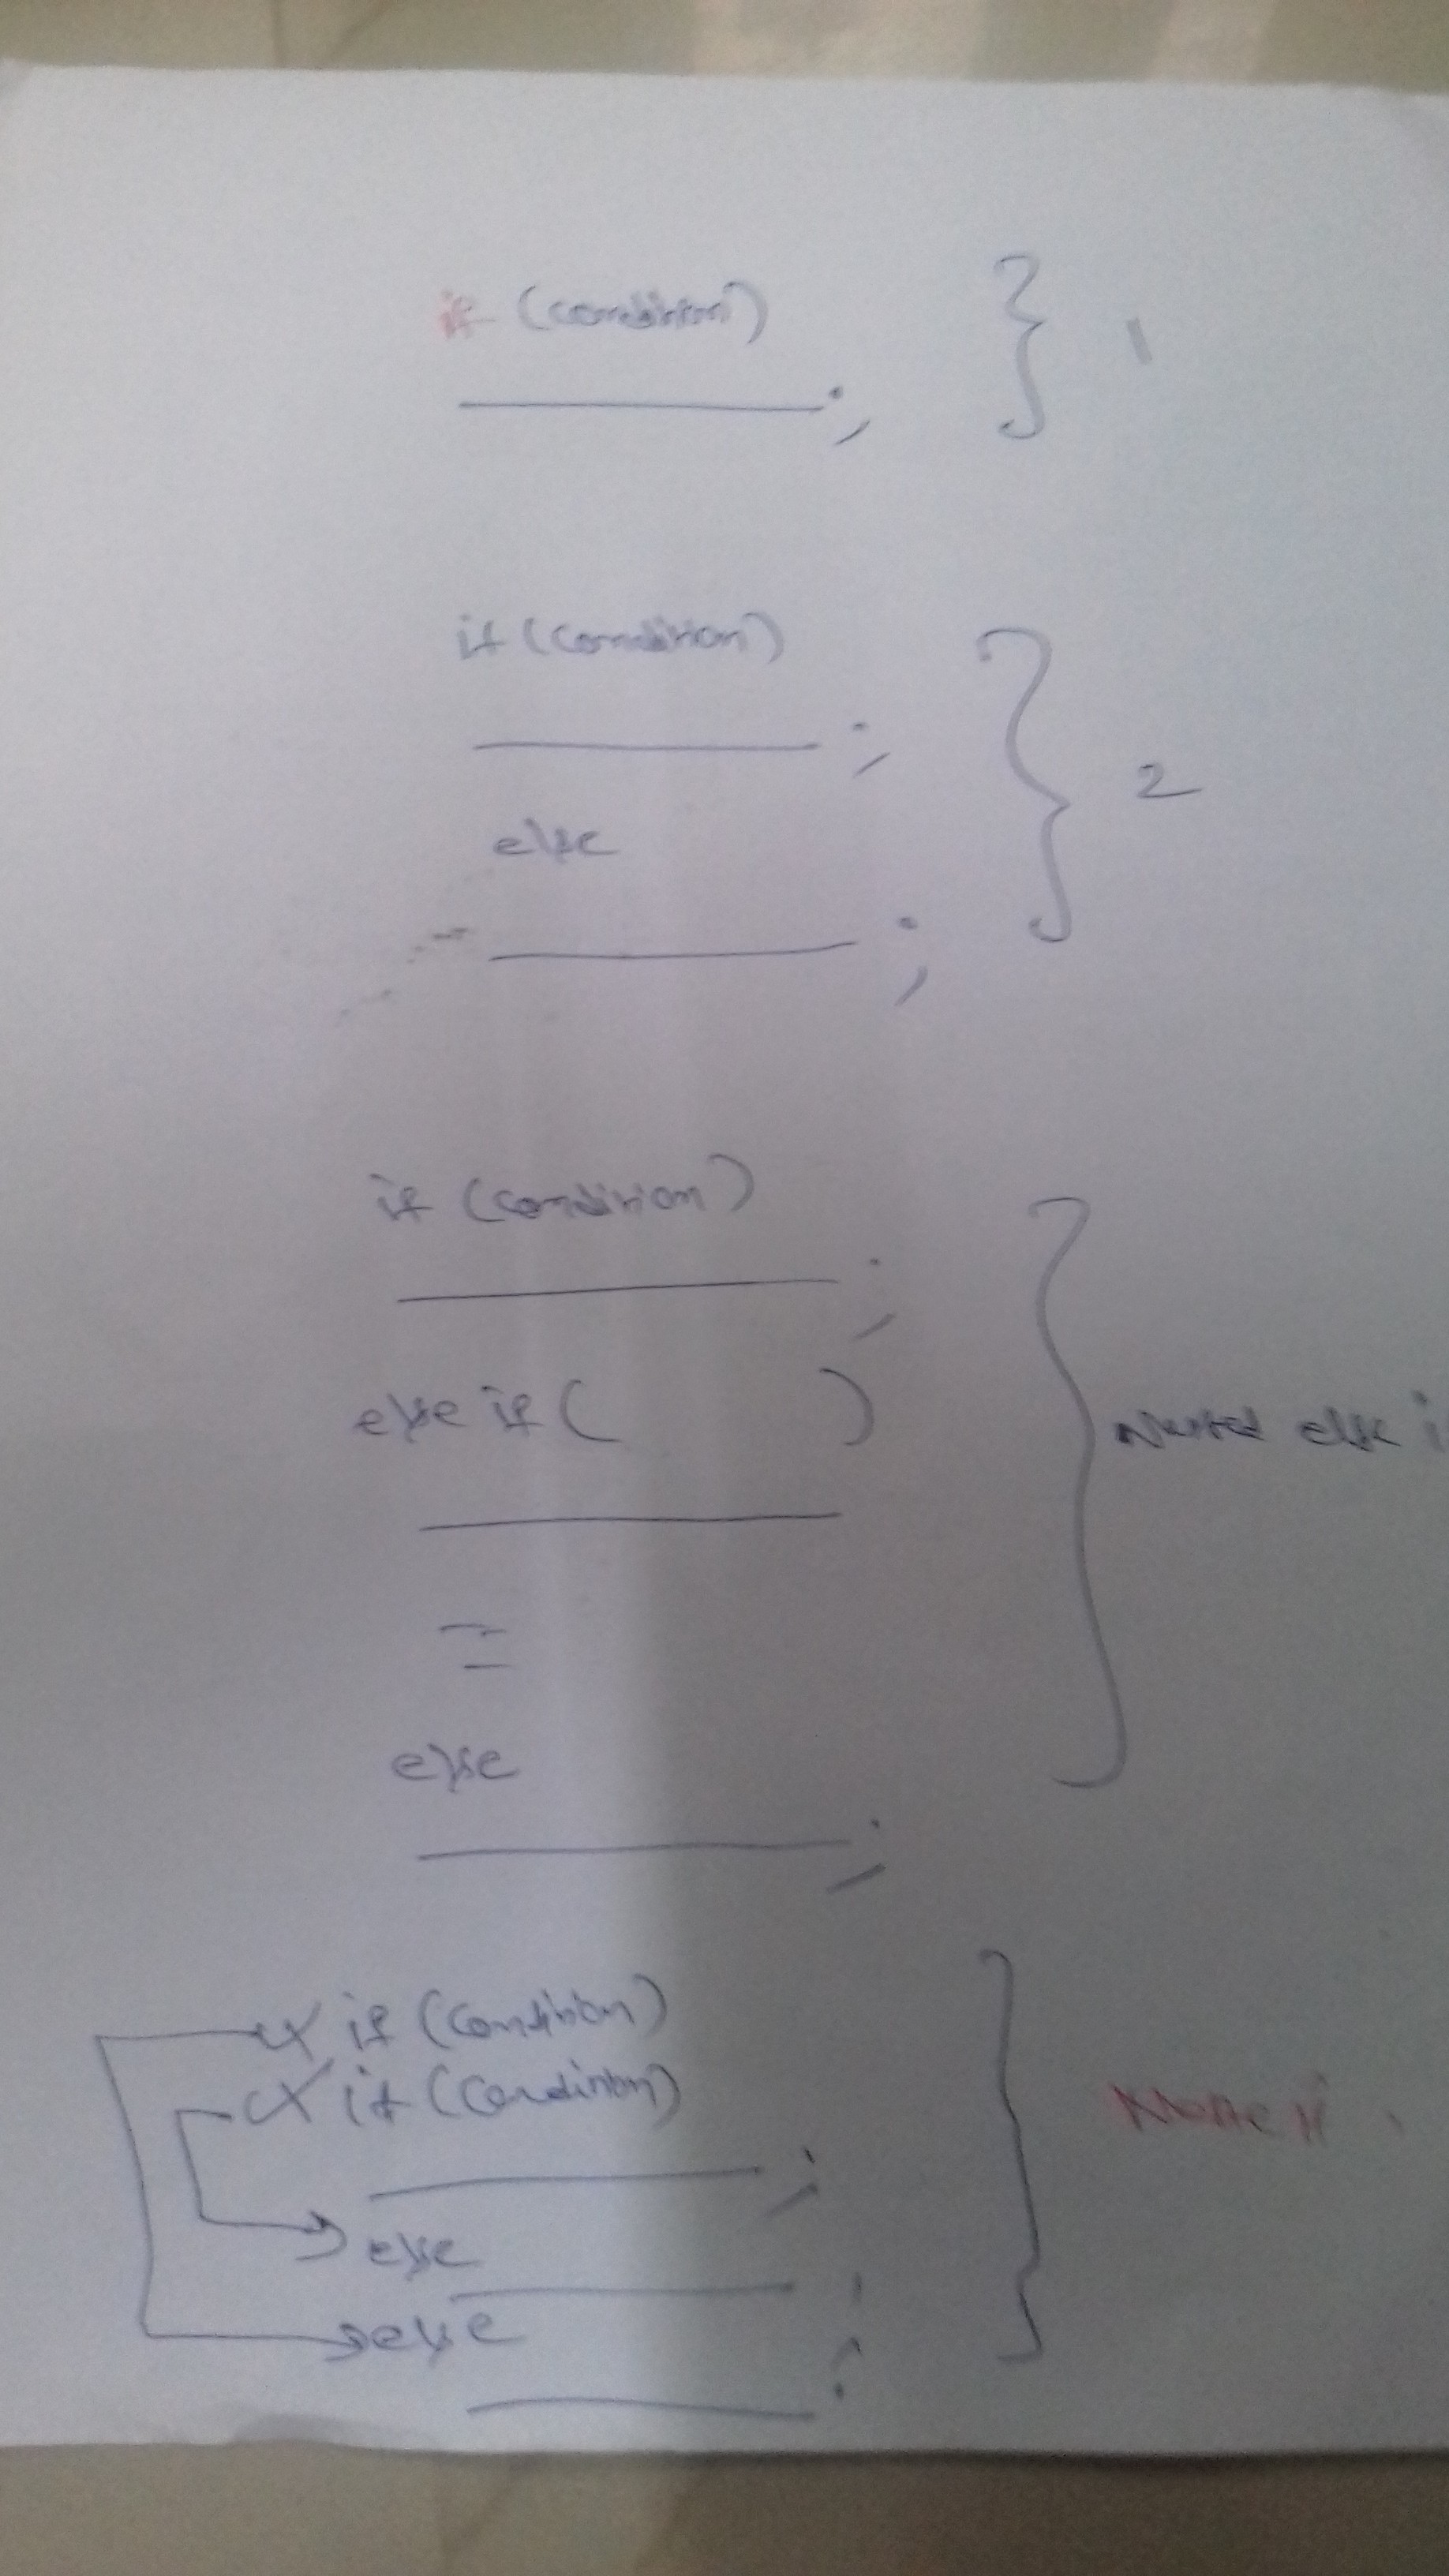 if (condition)
; } 1
if (condition)
;
else } 2
;
if (condition)
;
else if ( ) } Nested else i
else
;
if (condition)
if (condition)
;
else
;
else
;